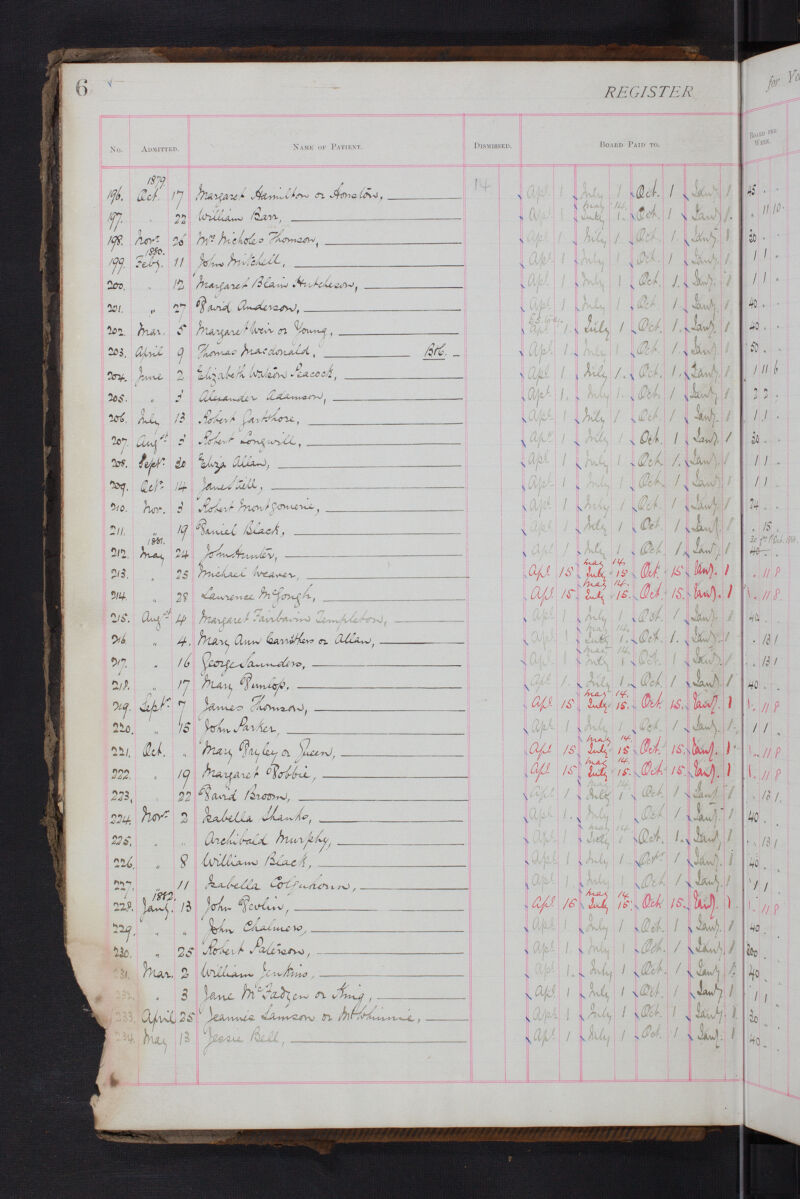 6
REGISTER
for
No. ADMITTED. NAME OF PATIENT. DISMISSED. BOARD PAID TO. BOARD PER WEEK.
1879
196. Oct. 17 Margaret Hamilton or 14 Apl. 1 July 1 Oct. 1 Jany 1 45 . .
May 14.
197. . 22 William Barr, Apl. 1 July 1. Oct. 1 Jany 1. . 11 10.
198. Novr. 26 Mrs Nicholas Thomson, Apl. 1 July 1. Oct. 1. Jany. 1 30 . .
1880.
199. Feby. 11 John Mitchell, Apl. 1 July 1. Oct. 1 Jany. 1 1 1 .
200. . 12 Margaret Blain Hutcheson, Apl. 1 July 1 Oct. 1. Jany. 1 1 1 .
201. " 27 David Anderson, Apl. 1 July 1 Oct. 1 Jany. 1 40 . .
202. Mar. 5 Margaret Weir or Young, Apl. 1. July 1 Oct. 1. Jany. 1 40 . .
203. April 9 Thomas Macdonald, Apl. 1 July 1 Oct. 1. Jany 1 50 . .
204. June 2 Elizabeth Watson Peacock, Apl. 1 July 1. Oct. 1. Jany. 1 1 11 6
205. " 3 Alexander Adamson, Apl. 1. July 1. Oct. 1 Jany. 1 2 2 .
206. July 13 Robert Gartshore, Apl. 1 July 1 Oct. 1 Jany. 1 1 1 .
207. Augst. 3 Robert Longwill, Apl. 1 July 1 Oct. 1 Jany. 1 30 . .
208. Septr. 20 Eliza Allan, Apl. 1 July 1. Oct. 1. Jany. 1 1 1 .
209. Octr. 14 Janet Tell, Apl. 1 July 1. Oct. 1 Jany. 1 1 1 .
210. Nov. 3 Robert Montgomerie, Apl. 1 July 1. Oct. 1 Jany. 1 24 . .
211. . 19 Daniel Black, Apl. 1 July 1 Oct. 1 Jany. 1 . 15 .
1881.
212. May 24 John Hunter, Apl. 1 July 1. Oct. 1 Jany. 1 40 . .
May 14.
213. . 25 Michael Weaver, Apl. 15 July 15 Oct. 15 Jany. 1 . 11 8
May 14.
214. " 28 Laurence McGough, Apl. 15. July 15. Oct. 15. Jany. 1 . 11 8.
215. Augst 4 Margaret Fairbairn Templeton, Apl. 1 July 1 Oct. 1 Jany. 1 40 . .
May 14.
216 " 4. Mary Ann Carruthers or Allan, Apl. 1 July 1. Oct. 1. Jany. 1 . 13 1
May 14.
217. . 16 George Saunders, Apl. 1 July 1 Oct. 1 Jany. 1 . 13 1
218. " 17 Mary Dunlop. Apl. 1 July 1 Oct. 1 Jany. 1 40 . .
May 14.
219. Septr. 7 James Thomson, Apl. 15 July 15. Oct. 15. Jany. 1 . 11 8
220. " 15 John Parker, Apl. 1 July 1 Oct. 1 Jany. 1 1 1 .
May 14.
221. Oct. " Mary Bayley or Queen, Apl. 15 July 15 Oct. 15. Jany. 1 . 11 8
May 14.
222. . 19 Margaret Dobbie, Apl. 15 July 15. Oct. 15 Jany. 1 . 11 8
223. . 22 David Broom, Apl. 1 July 1 Oct. 1 Jany. 1 . 13 1.
224. Novr. 2 Isabella Shanks, Apl. 1. July 1 Oct. 1 Jany. 1 40 . .
May 14
225. . . Archibald Murphy, Apl. 1 July 1 Oct. 1. Jany. 1 . 13 1
226. " 8 William Black, Apl. 1 July 1 Oct. 1 Jany. 1 40 . .
227. . 11 Isabella Colquhoun, Apl. 1 July 1 Oct. 1 Jany. 1 1 1 .
1882. May 14
228. Jany. 13 John Devlin, Apl. 15 July 15. Oct. 15. Jany. 1 . 11 8
229. " " John Chalmers, Apl. 1 July 1 Oct. 1 Jany. 1 40 . .
230. " 25 Robert Paterson, Apl. 1. July 1 Oct. 1 Jany. 1
231. Mar. 2 William Jenkins, Apl. 1. July 1 Oct. 1 Jany. 1 40 . .
232. . 3 Jane McFadzen or King, Apl. 1 July 1 Oct. 1 Jany 1 1 1 .
233. April 25 Jeannie Lamson or McWhinnie, Apl. 1 July 1 Oct. 1 Jany. 1 30 . .
234. May 13 Jessie Bell, Apl. 1 July 1 Oct. 1 Jany. 1 40 . .